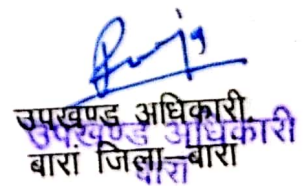 उपखण्ड अधिकारी
बारां जिला–बारां
उपखण्ड अधिकारी
बारां